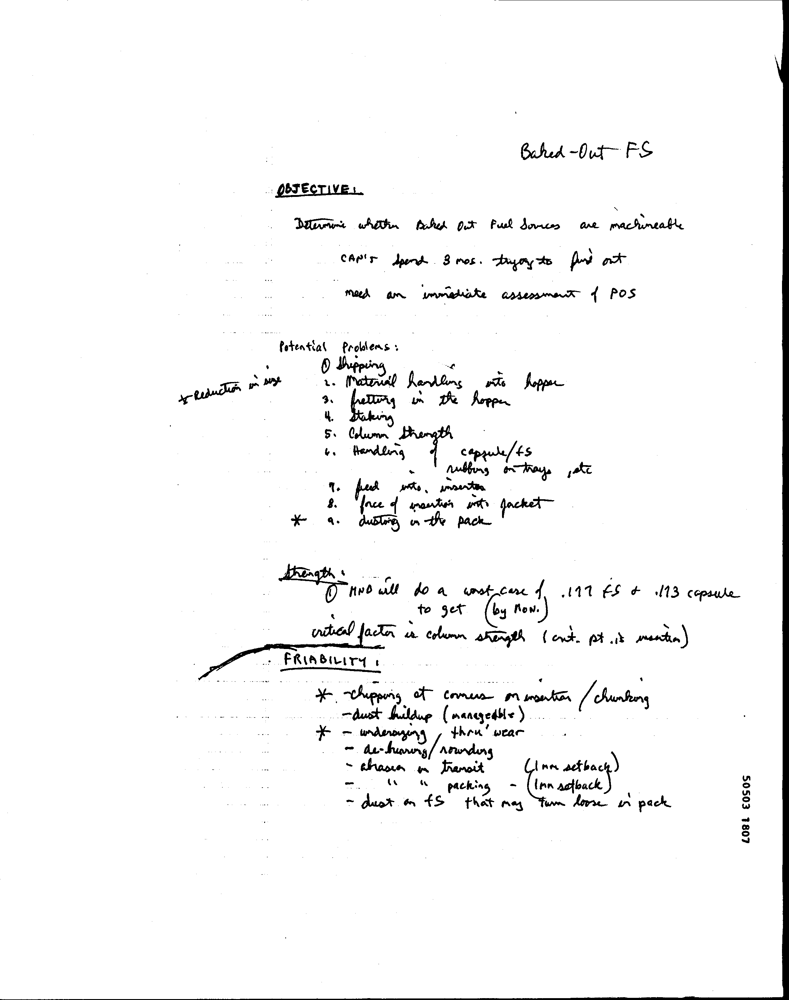 Baked-Out FS
OBJECTIVE:
Determine whether Baked Out Fuel Sources are machineable
CAN'T spend 3 mos. trying to find out
need an immediate assessment of POS
Potential Problems:
① Shipping
* Reduction in size
2. Material handling into hopper
3. fretting in the hopper
4. Staking
5. Column Strength
6. Handling of capsule/fS
rubbing on trays, etc
7. feed into inserter
8. force of insertion into jacket
* 9. dusting in the pack
Strength:
① MND will do a worst case of .177 FS & .173 capsule
to get (by Mon.)
critical factor is column strength (crit. pt. is insertion)
FRIABILITY:
* - chipping at corners on insertion / chunking
- dust buildup (manageable)
* - undersizing thru' wear
- de-burring/rounding
- abrasion in transit (1mm setback)
- " " packing - (1mm setback)
- dust on fS that may turn loose in pack
50503 1807